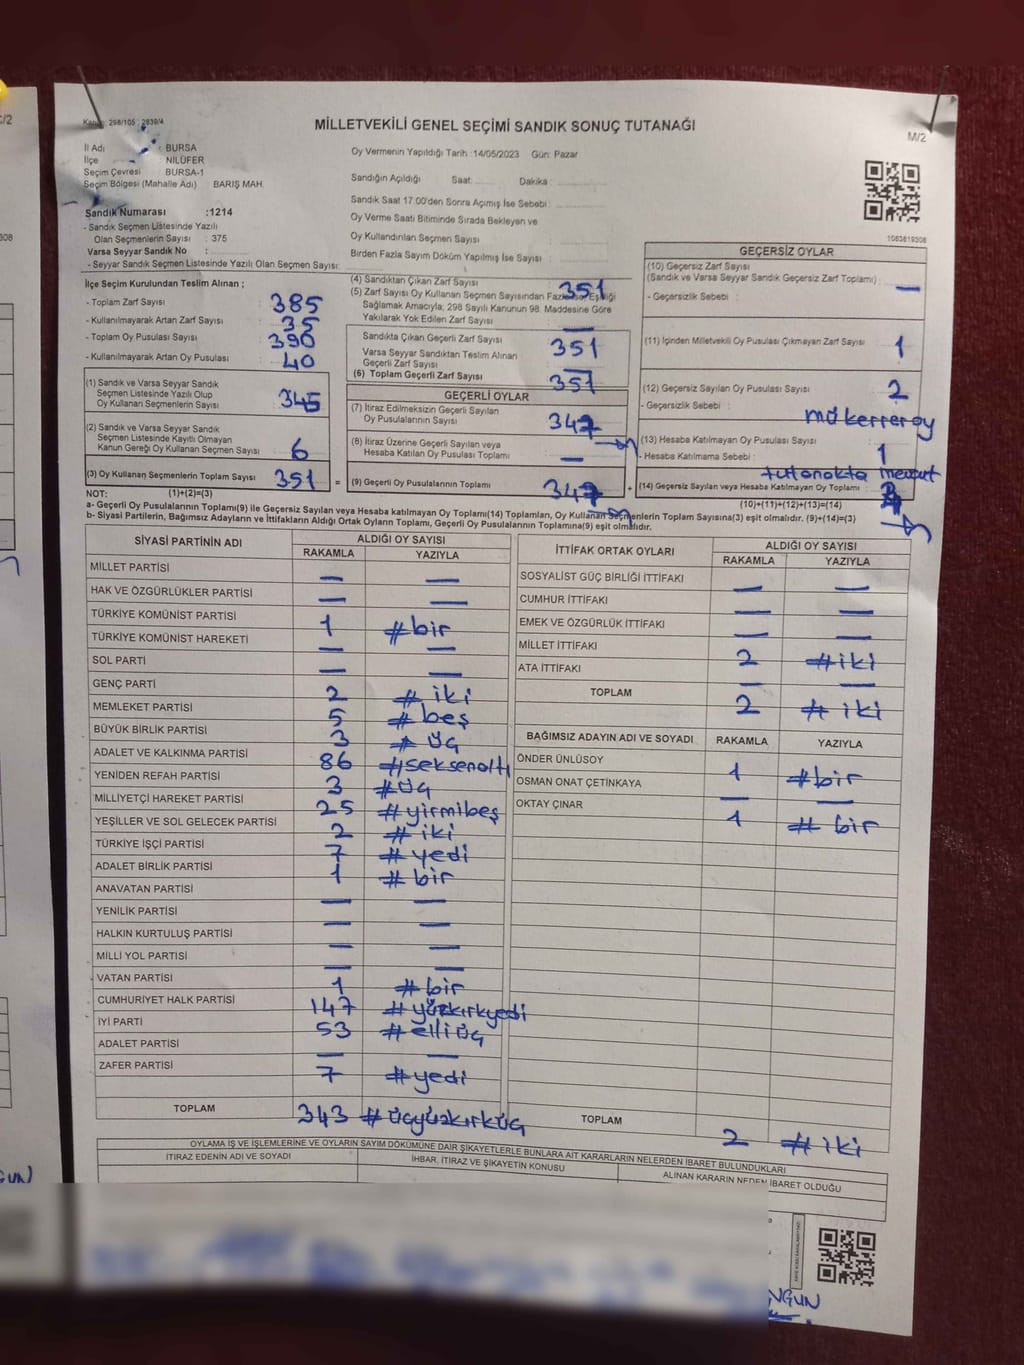 MİLLETVEKİLİ GENEL SEÇİMİ SANDIK SONUÇ TUTANAĞI
M/2
İl Adı : BURSA
İlçe : NİLÜFER
Seçim Çevresi : BURSA-1
Seçim Bölgesi (Mahalle Adı) BARIŞ MAH.
Sandık Numarası :1214
- Sandık Seçmen Listesinde Yazılı
Olan Seçmenlerin Sayısı : 375
Varsa Seyyar Sandık No :
- Seyyar Sandık Seçmen Listesinde Yazılı Olan Seçmen Sayısı:
Oy Vermenin Yapıldığı Tarih :14/05/2023 Gün: Pazar
Sandığın Açıldığı Saat: Dakika :
Sandık Saat 17.00'den Sonra Açılmış İse Sebebi :
Oy Verme Saati Bitiminde Sırada Bekleyen ve
Oy Kullandırılan Seçmen Sayısı :
Birden Fazla Sayım Döküm Yapılmış İse Sayısı :
1083619308
İlçe Seçim Kurulundan Teslim Alınan ;
- Toplam Zarf Sayısı : 385
- Kullanılmayarak Artan Zarf Sayısı : 35
- Toplam Oy Pusulası Sayısı : 390
- Kullanılmayarak Artan Oy Pusulası : 40
(1) Sandık ve Varsa Seyyar Sandık
Seçmen Listesinde Yazılı Olup
Oy Kullanan Seçmenlerin Sayısı : 345
(2) Sandık ve Varsa Seyyar Sandık
Seçmen Listesinde Kayıtlı Olmayan
Kanun Gereği Oy Kullanan Seçmen Sayısı : 6
(3) Oy Kullanan Seçmenlerin Toplam Sayısı : 351 =
(4) Sandıktan Çıkan Zarf Sayısı : 351
(5) Zarf Sayısı Oy Kullanan Seçmen Sayısından Fazla ise, Eşitliği
Sağlamak Amacıyla, 298 Sayılı Kanunun 98. Maddesine Göre
Yakılarak Yok Edilen Zarf Sayısı : —
Sandıkta Çıkan Geçerli Zarf Sayısı : 351
Varsa Seyyar Sandıktan Teslim Alınan
Geçerli Zarf Sayısı : —
(6) Toplam Geçerli Zarf Sayısı : 351
GEÇERLİ OYLAR
(7) İtiraz Edilmeksizin Geçerli Sayılan
Oy Pusulalarının Sayısı : 347
(8) İtiraz Üzerine Geçerli Sayılan veya
Hesaba Katılan Oy Pusulası Toplamı : —
(9) Geçerli Oy Pusulalarının Toplamı : 347 +
GEÇERSİZ OYLAR
(10) Geçersiz Zarf Sayısı
(Sandık ve Varsa Seyyar Sandık Geçersiz Zarf Toplamı) : —
- Geçersizlik Sebebi :
(11) İçinden Milletvekili Oy Pusulası Çıkmayan Zarf Sayısı : 1
(12) Geçersiz Sayılan Oy Pusulası Sayısı : 2
- Geçersizlik Sebebi : mükerrer oy
(13) Hesaba Katılmayan Oy Pusulası Sayısı : 1
- Hesaba Katılmama Sebebi : tutanakta mevcut
(14) Geçersiz Sayılan veya Hesaba Katılmayan Oy Toplamı :
NOT: (1)+(2)=(3)
(10)+(11)+(12)+(13)=(14)
a- Geçerli Oy Pusulalarının Toplamı(9) ile Geçersiz Sayılan veya Hesaba katılmayan Oy Toplamı(14) Toplamları, Oy Kullanan Seçmenlerin Toplam Sayısına(3) eşit olmalıdır. (9)+(14)=(3)
b- Siyasi Partilerin, Bağımsız Adayların ve İttifakların Aldığı Ortak Oyların Toplamı, Geçerli Oy Pusulalarının Toplamına(9) eşit olmalıdır.
SİYASİ PARTİNİN ADI ALDIĞI OY SAYISI
RAKAMLA YAZIYLA
MİLLET PARTİSİ — —
HAK VE ÖZGÜRLÜKLER PARTİSİ — —
TÜRKİYE KOMÜNİST PARTİSİ 1 #bir
TÜRKİYE KOMÜNİST HAREKETİ — —
SOL PARTİ — —
GENÇ PARTİ 2 #iki
MEMLEKET PARTİSİ 5 #beş
BÜYÜK BİRLİK PARTİSİ 3 #üç
ADALET VE KALKINMA PARTİSİ 86 #seksenaltı
YENİDEN REFAH PARTİSİ 3 #üç
MİLLİYETÇİ HAREKET PARTİSİ 25 #yirmibeş
YEŞİLLER VE SOL GELECEK PARTİSİ 2 #iki
TÜRKİYE İŞÇİ PARTİSİ 7 #yedi
ADALET BİRLİK PARTİSİ 1 #bir
ANAVATAN PARTİSİ — —
YENİLİK PARTİSİ — —
HALKIN KURTULUŞ PARTİSİ — —
MİLLİ YOL PARTİSİ — —
VATAN PARTİSİ 1 #bir
CUMHURİYET HALK PARTİSİ 147 #yüzkırkyedi
İYİ PARTİ 53 #elliüç
ADALET PARTİSİ — —
ZAFER PARTİSİ 7 #yedi
TOPLAM 343 #üçyüzkırküç
İTTİFAK ORTAK OYLARI ALDIĞI OY SAYISI
RAKAMLA YAZIYLA
SOSYALİST GÜÇ BİRLİĞİ İTTİFAKI — —
CUMHUR İTTİFAKI — —
EMEK VE ÖZGÜRLÜK İTTİFAKI — —
MİLLET İTTİFAKI 2 #iki
ATA İTTİFAKI — —
TOPLAM 2 #iki
BAĞIMSIZ ADAYIN ADI VE SOYADI RAKAMLA YAZIYLA
ÖNDER ÜNLÜSOY 1 #bir
OSMAN ONAT ÇETİNKAYA — —
OKTAY ÇINAR 1 #bir
TOPLAM 2 #iki
OYLAMA İŞ VE İŞLEMLERİNE VE OYLARIN SAYIM DÖKÜMÜNE DAİR ŞİKAYETLERLE BUNLARA AİT KARARLARIN NELERDEN İBARET BULUNDUKLARI
İTİRAZ EDENİN ADI VE SOYADI
İHBAR, İTİRAZ VE ŞİKAYETİN KONUSU
ALINAN KARARIN NEDEN İBARET OLDUĞU